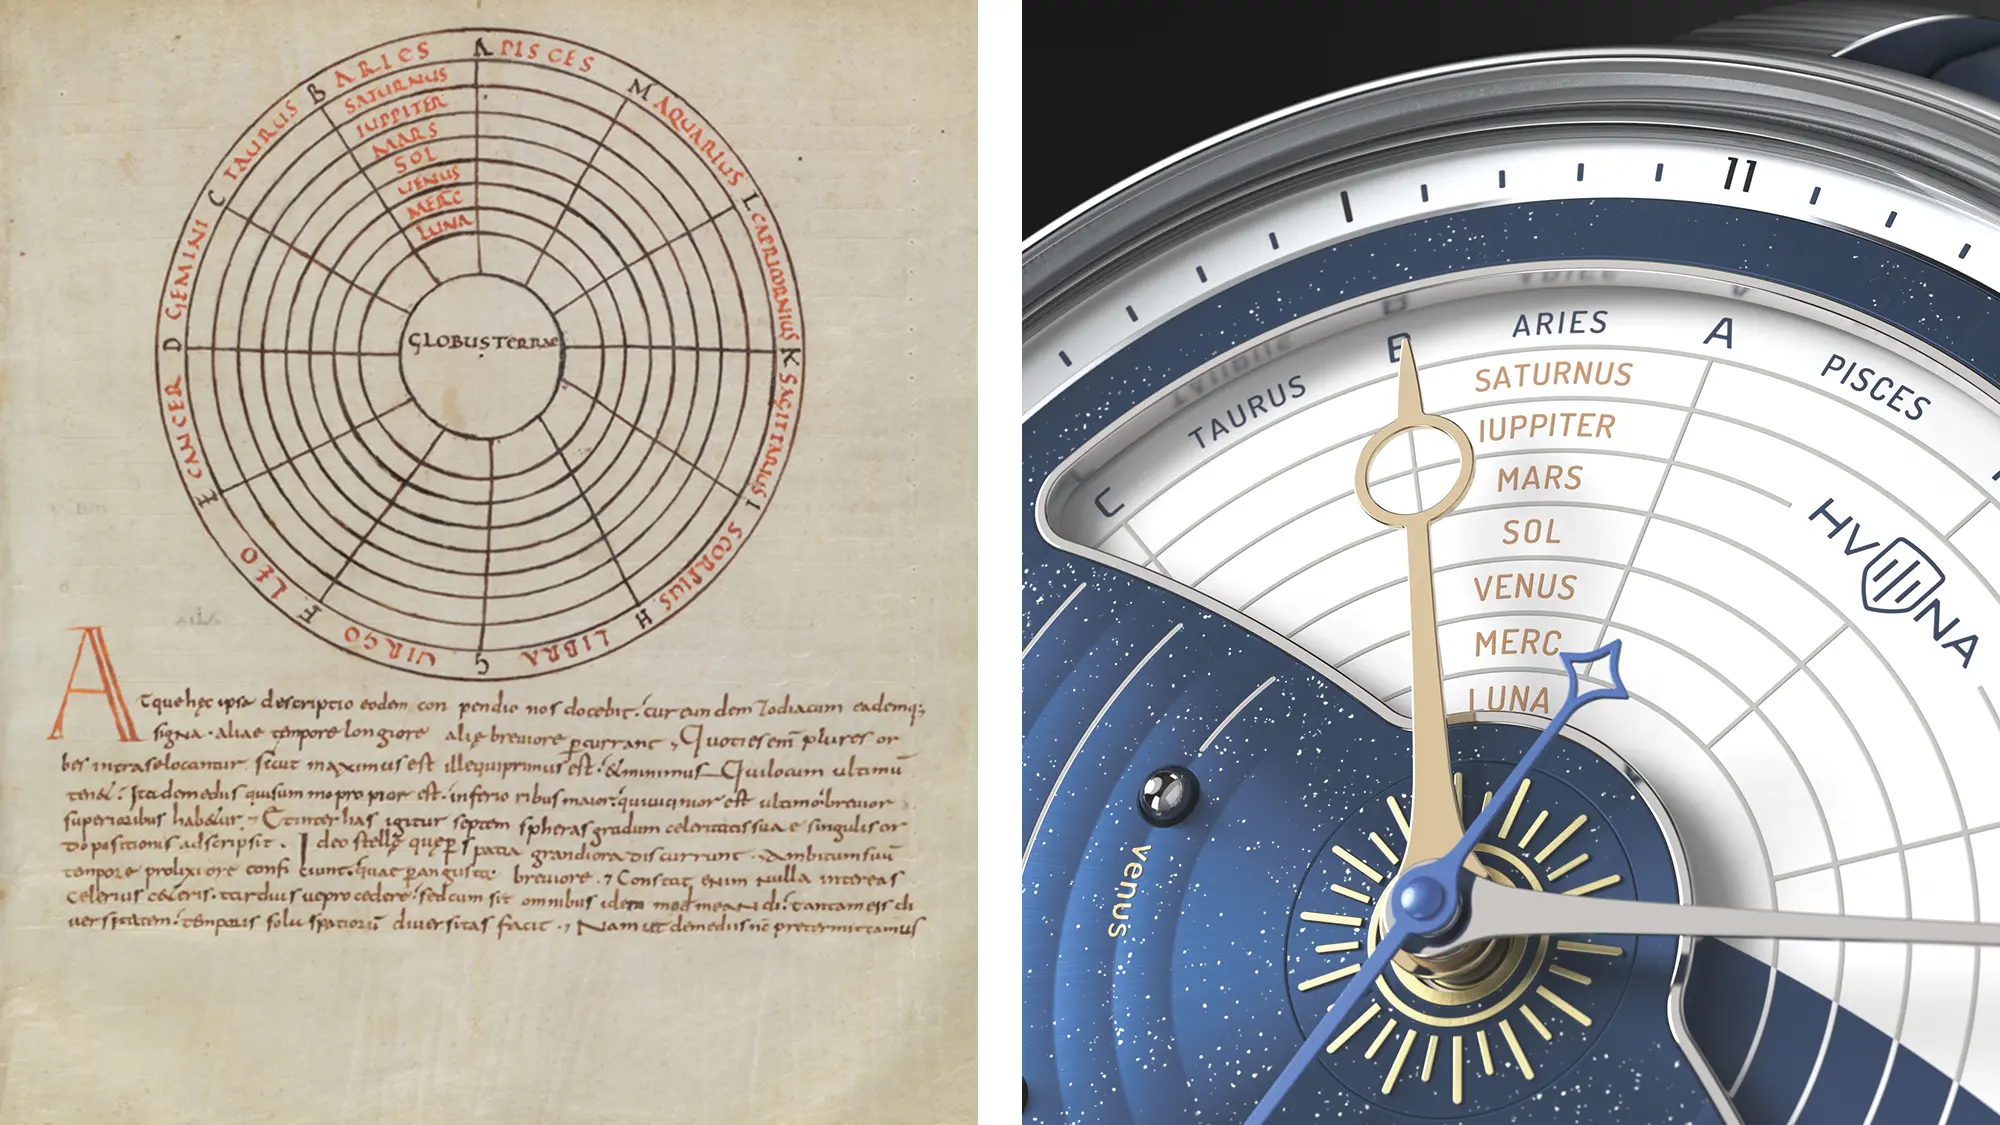 A PISCES M AQUARIUS L CAPRICORNIUS K SAGITTARIUS I SCORPIUS H LIBRA G VIRGO F LEO E CANCER D GEMINI C TAURUS B ARIES
SATURNUS
IUPPITER
MARS
SOL
UENUS
MERC
LUNA
GLOBUS TERRAE
Atque hęc ipsa descriptio eodem con pendio nos docebit. cur eundem zodiacum eademq;
signa. aliae tempore longiore alię breuiore pcurrant. Quotiesenī plures or
bes intraselocantur. sicut maximus est illequiprimus est. & minimus Quilocum ultimū
superioribus habetur. Et inter has igitur septem spheras gradum celeritatis sua e singulis or
do positionis adscripsit. Ideo stellę quęp spatia grandiora discurrunt. Ambitum suū
tempore prolixiore conficiunt. quae pangusta breuiore. Constat enim nulla intereas
celerius ceteris. tardius ueprocedere. sed cum sit omnibus idem modmeandi. tantameis di
uersitatem. temporis solu spatiorū diuersitas facit. Nam ut demediisnc pretermittamus
11
ARIES
A
PISCES
B
TAURUS
C
SATURNUS
IUPPITER
MARS
SOL
VENUS
MERC
LUNA
HVNA
venus